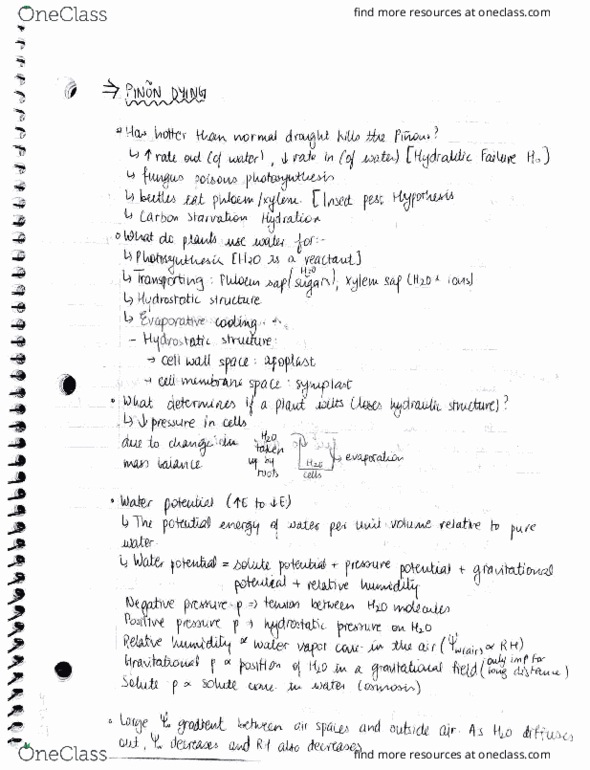 OneClass
find more resources at oneclass.com
⇒ PIÑON DYING
• Has hotter than normal drought kills the Piñons?
↳ ↑ rate out (of water), ↓ rate in (of water) [Hydralitic Failure H₀)
↳ fungus poisons photosynthesis
↳ beetles eat phloem/xylem. [Insect pest Hypothesis
↳ Carbon starvation Hydration
• What do plants use water for:-
↳ Photosynthesis [H2O is a reactant]
↳ Transporting: Phloem sap (H2O sugars), xylem sap (H2O + ions)
↳ Hydrostatic structure
↳ Evaporative cooling
- Hydrostatic structure:
→ cell wall space: apoplast
→ cell membrane space: symplast
• What determines if a plant wilts (loses hydraulic structure)?
↳ ↓ pressure in cells
due to change in
mass balance
H2O
taken
up by
roots
H2O
cells
→ evaporation
• Water potential (↑E to ↓E)
↳ The potential energy of water per unit volume relative to pure
water.
↳ Water potential = solute potential + pressure potential + gravitational
potential + relative humidity
Negative pressure p ⇒ tension between H2O molecules
Positive pressure p → hydrostatic pressure on H2O
Relative humidity ∝ water vapor conc in the air (Ψw(air) ∝ RH)
Gravitational p ∝ position of H2O in a gravitational field (only imp for
long distance)
Solute p ∝ solute conc in water (osmosis)
• Large Ψw gradient between air spaces and outside air. As H2O diffuses
out, Ψw decreases and RH also decreases
OneClass
find more resources at oneclass.com